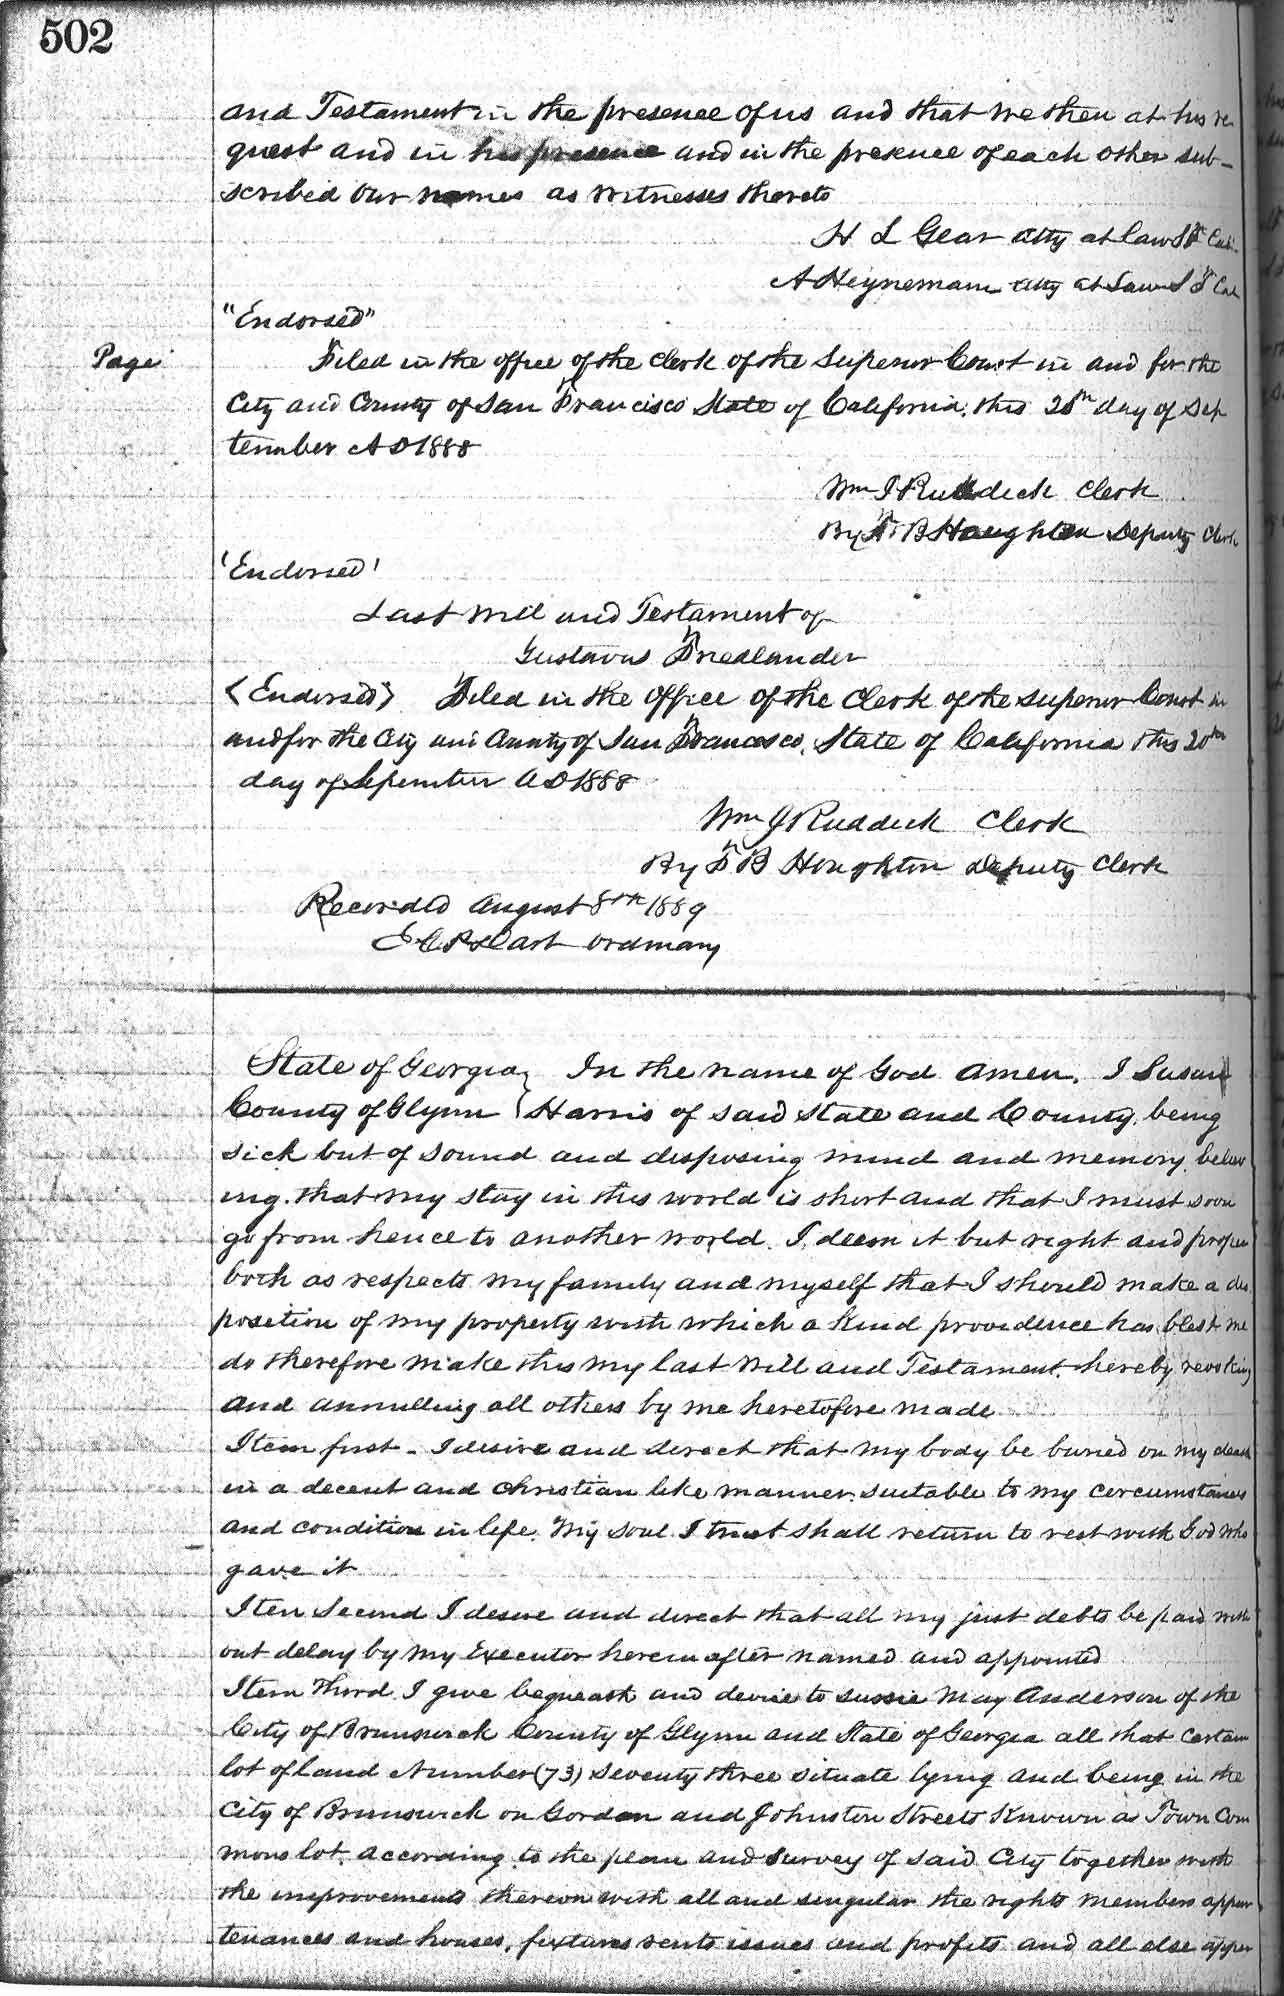 502
and Testament in the presence of us and that we then at his re
quest and in his presence and in the presence of each other sub-
scribed our names as witnesses thereto
H L Gear atty at Law S F Cal
A Heynemann atty at Law S F Cal
"Endorsed"
Page
Filed in the office of the Clerk of the Superior Court in and for the
City and County of San Francisco State of California, this 20th day of Sep
tember A D 1888
Wm J Ruddick Clerk
By F B Houghton Deputy Clerk
'Endorsed'
Last Will and Testament of
Gustavus Friedlander
<Endorsed> Filed in the Office of the Clerk of the Superior Court in
and for the City and County of San Francisco, State of California this 20th
day of Sepember A D 1888
Wm J Ruddick Clerk
By F B Houghton Deputy Clerk
Recorded August 8th 1889
Ordinary
State of Georgia } In the name of God Amen. I Susan
County of Glynn } Harris of said State and County, being
sick but of sound and disposing mind and memory, believ
ing that my stay in this world is short and that I must soon
go from hence to another world. I deem it but right and proper
both as respects my family and myself that I should make a dis
position of my property with which a Kind providence has blest me
do therefore make this my last Will and Testament, hereby revoking
and annulling all others by me heretofore made
Item first - I desire and direct that my body be buried on my death
in a decent and Christian like manner, suitable to my circumstances
and condition in life. My soul I trust shall return to rest with God who
gave it
Iten Second I desire and direct that all my just debts be paid with
out delay by my Executor herein after named and appointed
Item Third I give bequeath and devise to Sussie May Anderson of the
City of Brunswick County of Glynn and State of Georgia all that certain
lot of land Number (73) seventy three situate lying and being in the
City of Brunswick on Gordon and Johnston Streets Known as Town Com
mons lot, according to the plan and survey of said City together with
the improvements thereon with all and singular the rights members appur
tenances and houses, fixtures rents issues and profits and all else apper